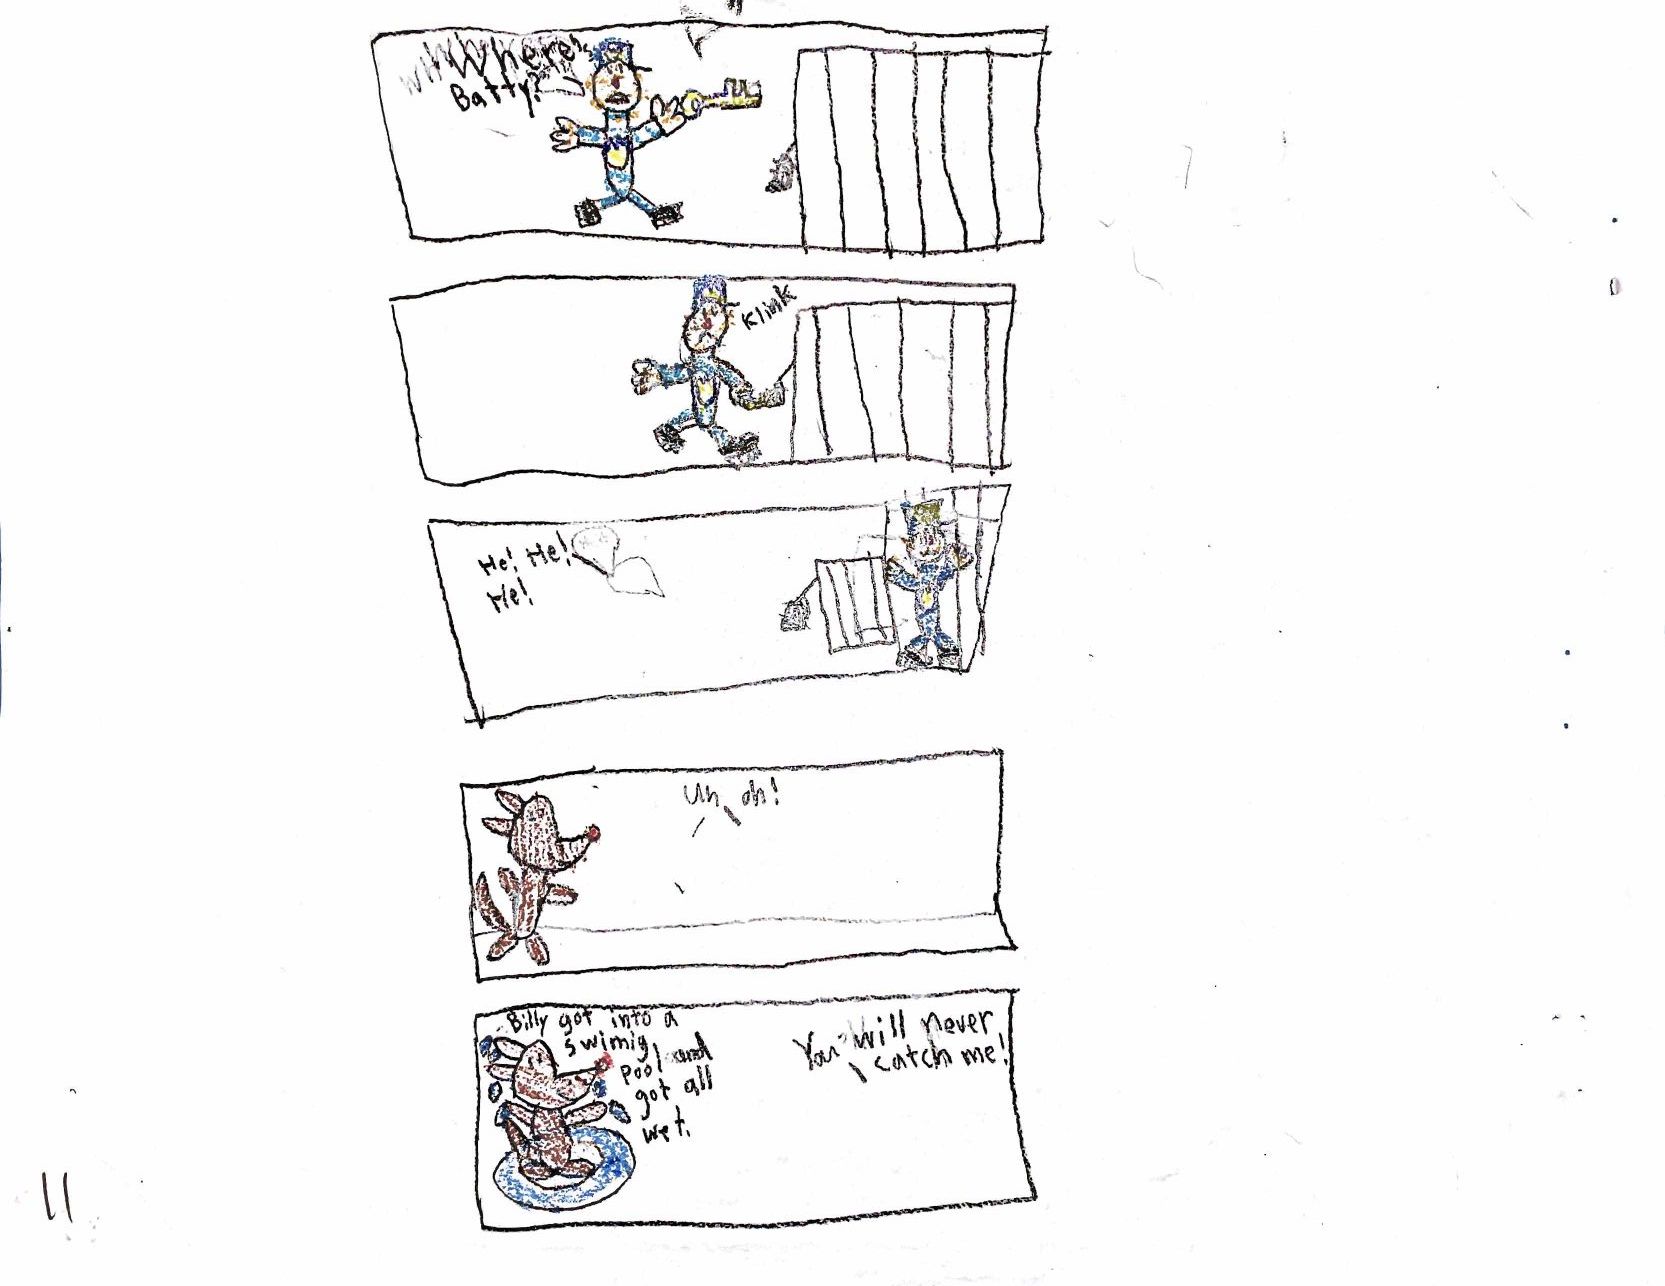 Where's
Batty?
Klink
He! He!
He!
Uh, oh!
Billy got into a
swimig
pool and
got all
wet.
You will never
catch me!
11